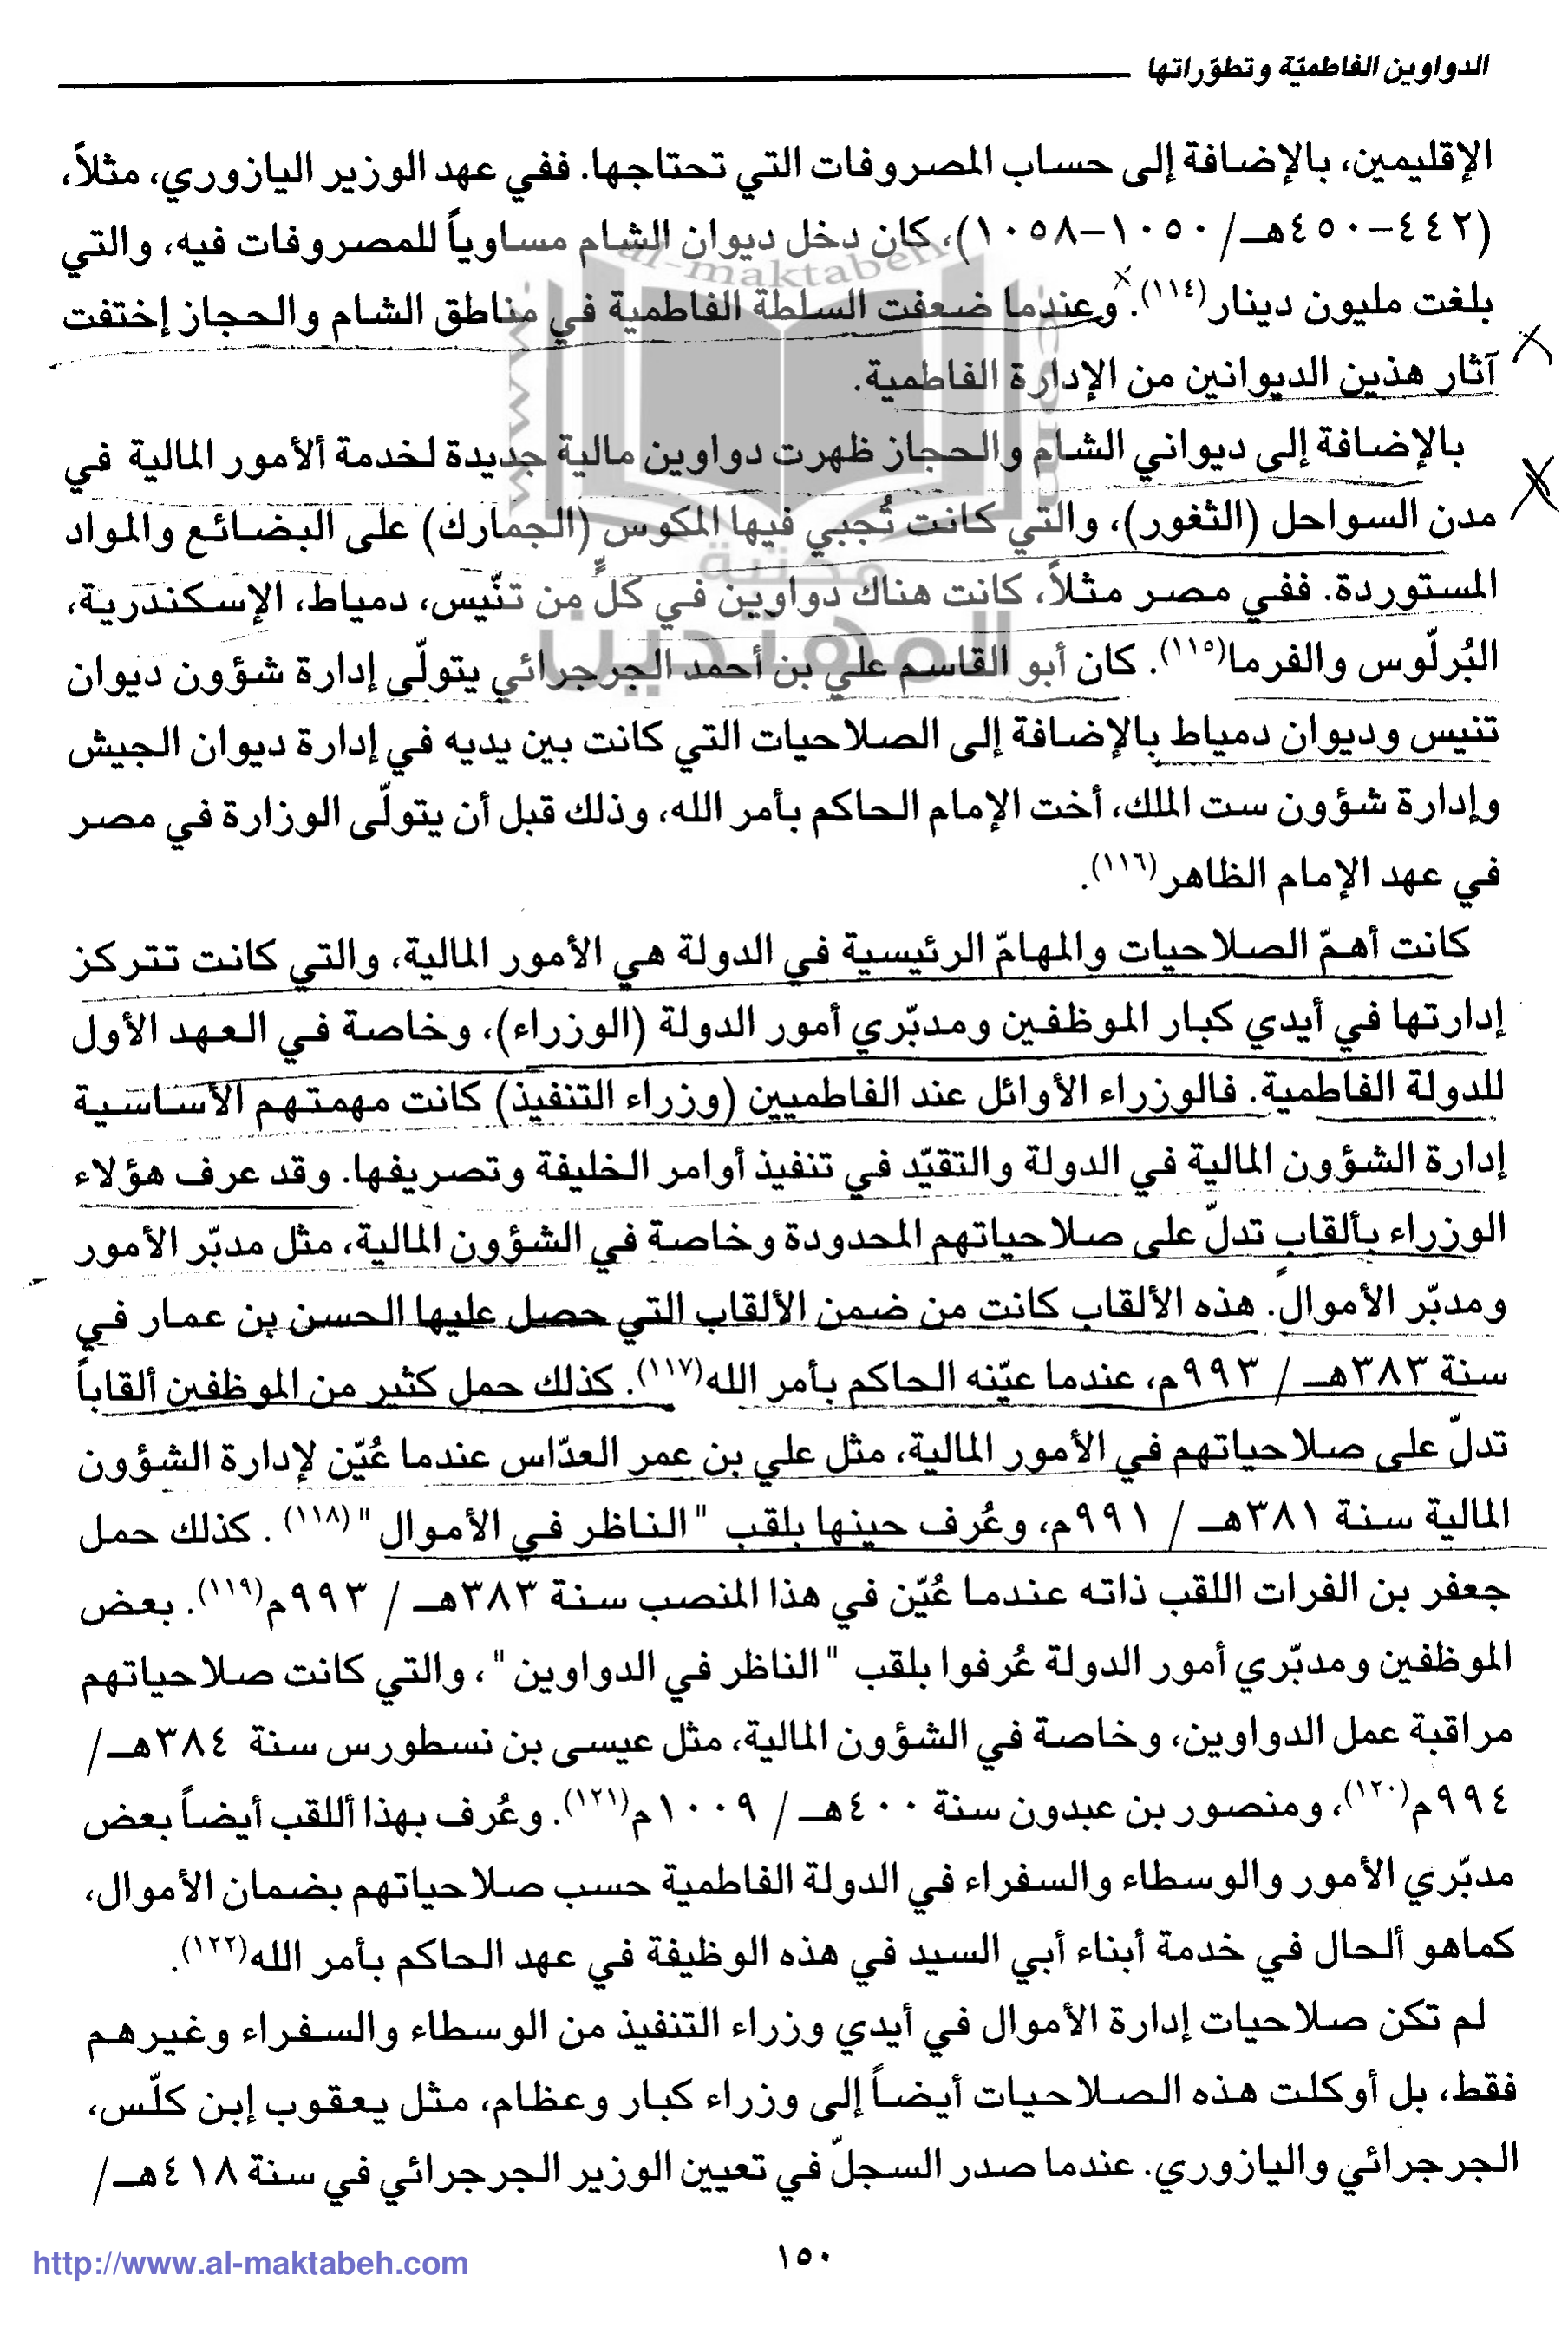 الدواوين الفاطميّة وتطوّراتها
الإقليمين، بالإضافة إلى حساب المصروفات التي تحتاجها. ففي عهد الوزير اليازوري، مثلاً،
(٤٤٢-٤٥٠هـ/ ١٠٥٠-١٠٥٨)، كان دخل ديوان الشام مساوياً للمصروفات فيه، والتي
بلغت مليون دينار(١١٤). وعندما ضعفت السلطة الفاطمية في مناطق الشام والحجاز إختفت
آثار هذين الديوانين من الإدارة الفاطمية.
بالإضافة إلى ديواني الشام والحجاز ظهرت دواوين مالية جديدة لخدمة ألأمور المالية في
مدن السواحل (الثغور)، والتي كانت تُجبي فيها المكوس (الجمارك) على البضائع والمواد
المستوردة. ففي مصر مثلاً، كانت هناك دواوين في كلٍّ من تنّيس، دمياط، الإسكندرية،
البُرلّوس والفرما(١١٥). كان أبو القاسم علي بن أحمد الجرجرائي يتولّى إدارة شؤون ديوان
تنيس وديوان دمياط بالإضافة إلى الصلاحيات التي كانت بين يديه في إدارة ديوان الجيش
وإدارة شؤون ست الملك، أخت الإمام الحاكم بأمر الله، وذلك قبل أن يتولّى الوزارة في مصر
في عهد الإمام الظاهر(١١٦).
كانت أهمّ الصلاحيات والمهامّ الرئيسية في الدولة هي الأمور المالية، والتي كانت تتركز
إدارتها في أيدي كبار الموظفين ومدبّري أمور الدولة (الوزراء)، وخاصة في العهد الأول
للدولة الفاطمية. فالوزراء الأوائل عند الفاطميين (وزراء التنفيذ) كانت مهمتهم الأساسية
إدارة الشؤون المالية في الدولة والتقيّد في تنفيذ أوامر الخليفة وتصريفها. وقد عرف هؤلاء
الوزراء بألقاب تدلّ على صلاحياتهم المحدودة وخاصة في الشؤون المالية، مثل مدبّر الأمور
ومدبّر الأموال. هذه الألقاب كانت من ضمن الألقاب التي حصل عليها الحسن بن عمار في
سنة ٣٨٣هـ / ٩٩٣م، عندما عيّنه الحاكم بأمر الله(١١٧). كذلك حمل كثير من الموظفين ألقاباً
تدلّ على صلاحياتهم في الأمور المالية، مثل علي بن عمر العدّاس عندما عُيّن لإدارة الشؤون
المالية سنة ٣٨١هـ / ٩٩١م، وعُرف حينها بلقب "الناظر في الأموال"(١١٨). كذلك حمل
جعفر بن الفرات اللقب ذاته عندما عُيّن في هذا المنصب سنة ٣٨٣هـ / ٩٩٣م(١١٩). بعض
الموظفين ومدبّري أمور الدولة عُرفوا بلقب "الناظر في الدواوين"، والتي كانت صلاحياتهم
مراقبة عمل الدواوين، وخاصة في الشؤون المالية، مثل عيسى بن نسطورس سنة ٣٨٤هـ/
٩٩٤م(١٢٠)، ومنصور بن عبدون سنة ٤٠٠هـ / ١٠٠٩م(١٢١). وعُرف بهذا أللقب أيضاً بعض
مدبّري الأمور والوسطاء والسفراء في الدولة الفاطمية حسب صلاحياتهم بضمان الأموال،
كماهو ألحال في خدمة أبناء أبي السيد في هذه الوظيفة في عهد الحاكم بأمر الله(١٢٢).
لم تكن صلاحيات إدارة الأموال في أيدي وزراء التنفيذ من الوسطاء والسفراء وغيرهم
فقط، بل أوكلت هذه الصلاحيات أيضاً إلى وزراء كبار وعظام، مثل يعقوب إبن كلّس،
الجرجرائي واليازوري. عندما صدر السجلّ في تعيين الوزير الجرجرائي في سنة ٤١٨هـ/
١٥٠
http://www.al-maktabeh.com
al-maktabeh
مكتبة
المهتدين